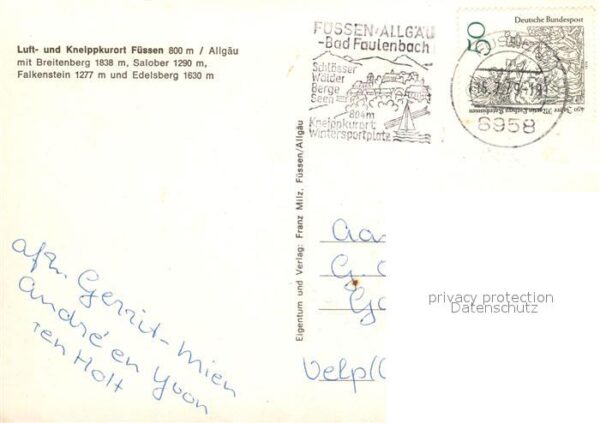 Luft- und Kneippkurort Füssen 800 m / Allgäu
mit Breitenberg 1838 m, Salober 1290 m,
Falkenstein 1277 m und Edelsberg 1630 m
FÜSSEN/ALLGÄU
-Bad Faulenbach
Schlösser
Wälder
Berge
Seen
804m
Kneippkurort
Wintersportplatz
50
Deutsche Bundespost
8958
Eigentum und Verlag: Franz Milz, Füssen/Allgäu
afz. Gerrit-Mien
André en Yvon
ten Holt
Aa
G.
Velp
privacy protection
Datenschutz